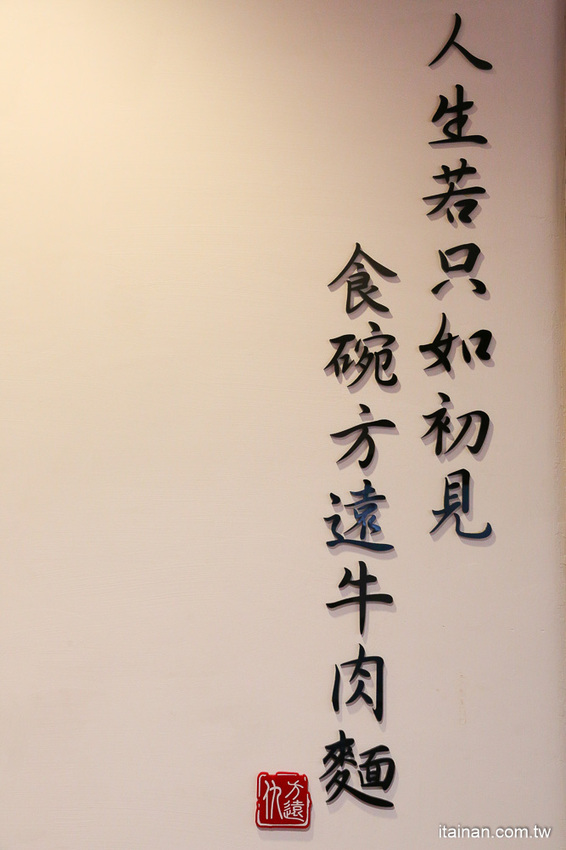 人生若只如初見
食碗方遠牛肉麵
方遠
itainan.com.tw